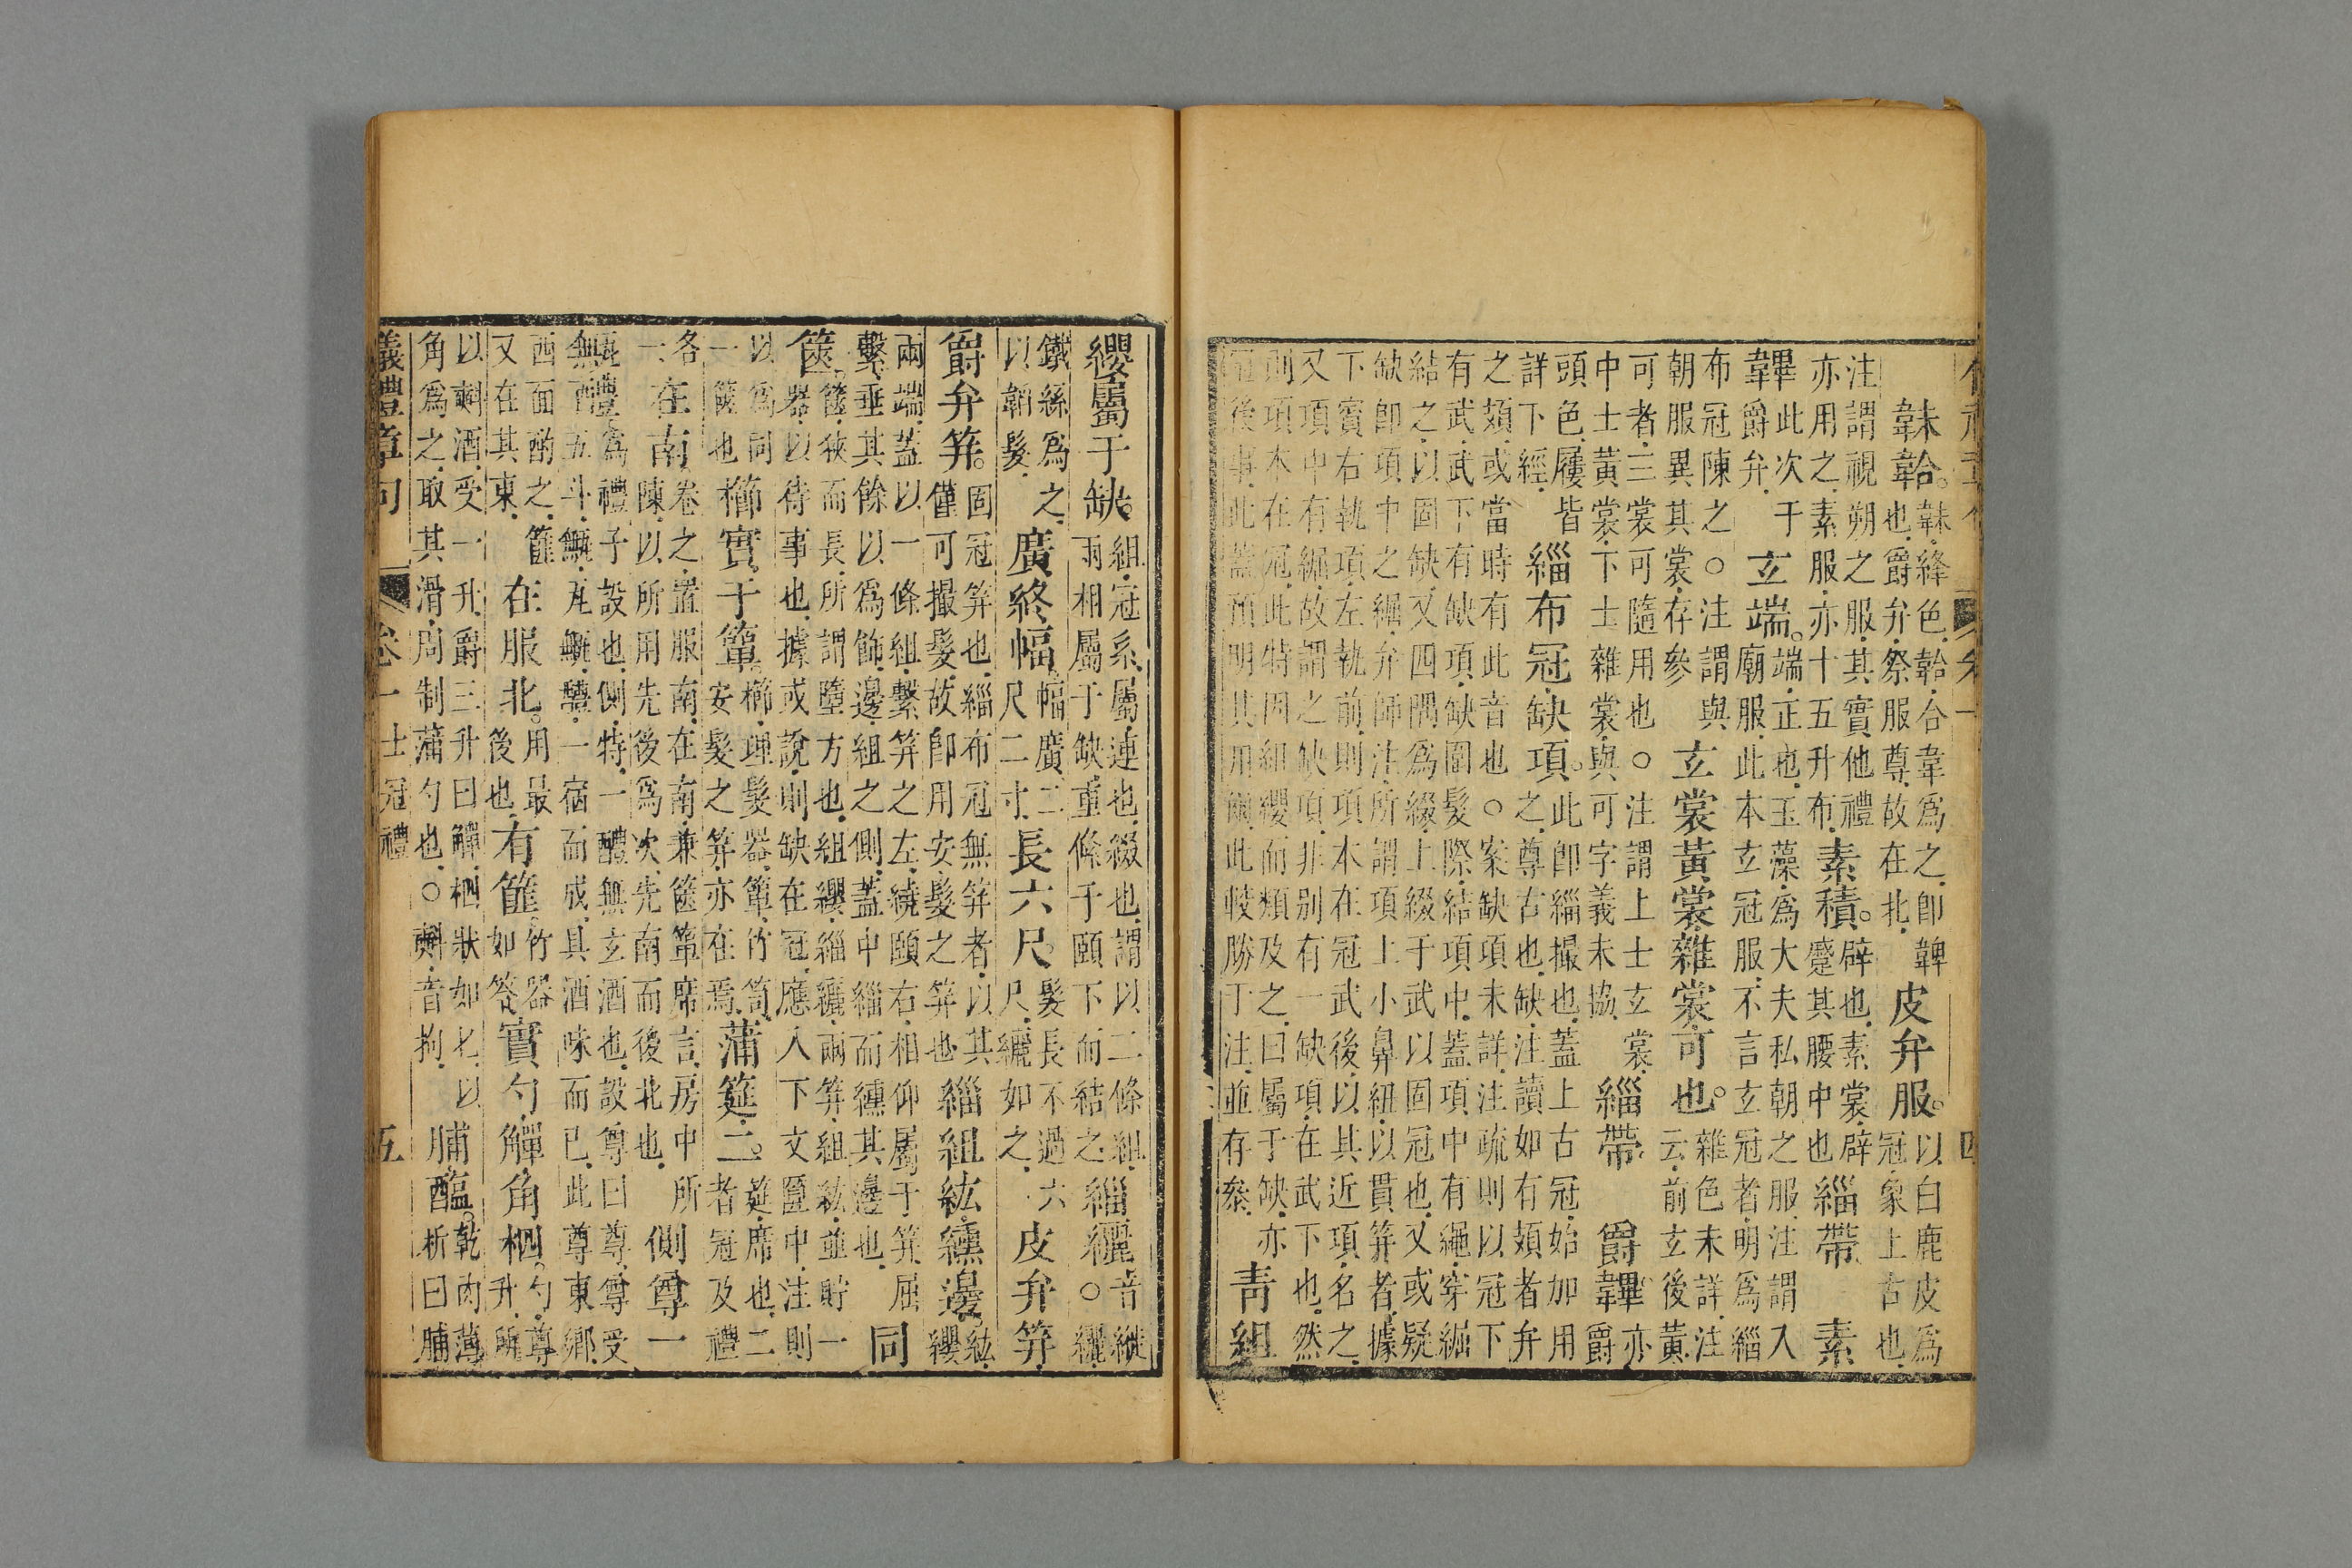 韎韐。韎絳色韐合韋爲之卽韠也爵弁祭服尊故在北皮弁服。以白鹿皮爲冠象上古也
注謂視朔之服其實他禮亦用之素服亦十五升布素積。辟也素裳辟蹙其腰中也緇帶素
韠此次于爵弁玄端。端正也玉藻爲大夫私朝之服注謂入廟服此本玄冠服不言玄冠者明爲緇
布冠陳之○注謂與朝服異其裳存參玄裳黃裳雜裳可也。雜色未詳注云前玄後黃
可者三裳可隨用也○注謂上士玄裳中士黃裳下士雜裳與可字義未協緇帶爵韠亦爵
頭色屨皆詳下經緇布冠缺項。此卽緇撮也蓋上古冠始加用之尊古也缺注讀如有頍者弁
之頍或當時有此音也○案缺項未詳注疏則以冠下有武武下有缺項缺圍髮際結項中蓋項中有繩穿䋝
結之以固缺又四隅爲綴上綴于武以固冠也又或疑缺卽項中之䋝弁師注所謂項上小鼻紐以貫笄者據
下賓右執項左執前則項本在冠武後以其近項名之又項中有䋝故謂之缺項非別有一缺項在武下也然
則項本在冠此特因組纓而類及之曰屬于缺亦冠後事此蓋預明其用爾此較勝丁注並存叅青組
纓屬于缺。組冠系屬連也綴也謂以二條組兩相屬于缺重條于頤下而結之緇纚音縰○纚
織絲爲之以韜髮廣終幅幅廣二尺二寸長六尺。髮長不過六尺纚如之皮弁笄
爵弁笄。固冠笄也緇布冠無笄者以其僅可撮髮故卽用安髮之笄也緇組紘纁邊紘纓
兩端蓋以一條組繫笄之左繞頤右相仰屬于笄屈繫垂其餘以爲飾邊組之側蓋中緇而纁其邊也同
篋。篋狹而長所謂隋方也組纓緇纚兩笄組紘並貯一器以待事也據或說則缺在冠應入下文匴中注則
以爲同一篋也櫛實于簞。櫛理髮器簞竹笥安髮之笄亦在焉蒲筵二。筵席也二者冠及禮
各一在南卷之置服南在南兼篋簞席言房中所陳以所用先後爲次先南而後北也側尊一
甒醴爲禮子設也側特一醴無玄酒也設尊曰尊尊受五斗甒瓦甒醴一宿而成其酒味而已此尊東鄉
西面酌之篚又在其東在服北。用最後也有篚竹器如笭實勺觶角柶。勺尊升所
以㪺酒受一升爵三升曰觶柶狀如匕以角爲之取其滑周制蒲勺也○㪺音拘脯醢。乾肉薄析曰脯
儀禮章句 卷一士冠禮 五